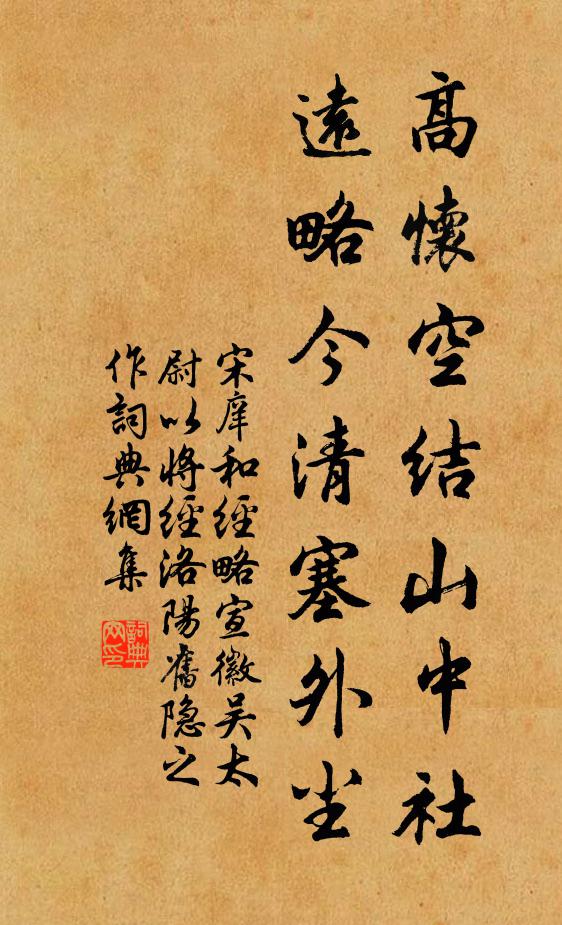 高懷空結山中社
遠略今清塞外尘
宋庠和經略宣徽吴太
尉以將經洛陽舊隐之
作詞典網集
詞典網印